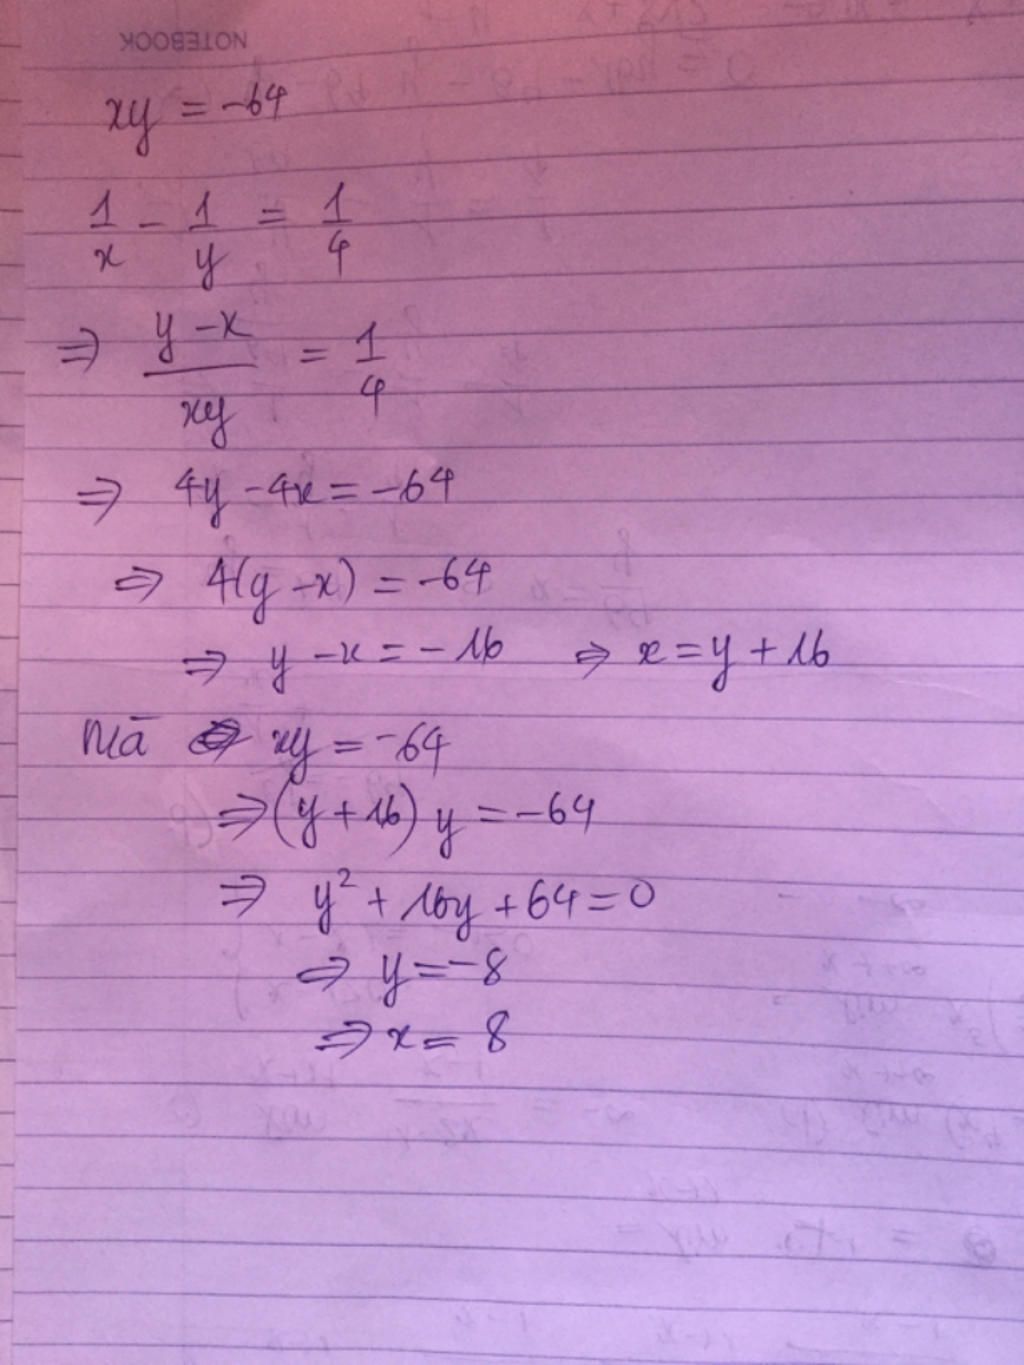 NOTEBOOK
xy = -64
1/x - 1/y = 1/4
⇒ (y - x)/xy = 1/4
⇒ 4y - 4x = -64
⇒ 4(y - x) = -64
⇒ y - x = -16 ⇒ x = y + 16
Mà xy = -64
⇒ (y + 16) y = -64
⇒ y² + 16y + 64 = 0
⇒ y = -8
⇒ x = 8